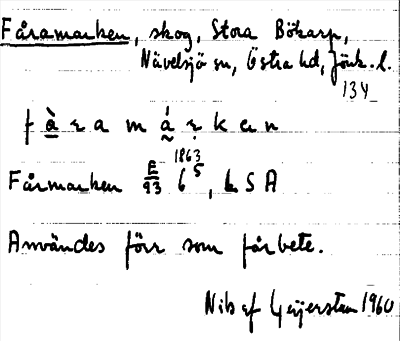 Fåramarken, skog, Stora Bökarp,
Nävelsjö sn, Östra hd, Jönk. l.
134
f à r a m á r k e n
1863
Fårmarken E 93 6 5, LSA
Användes förr som fårbete.
Nils af Geijerstam 1960